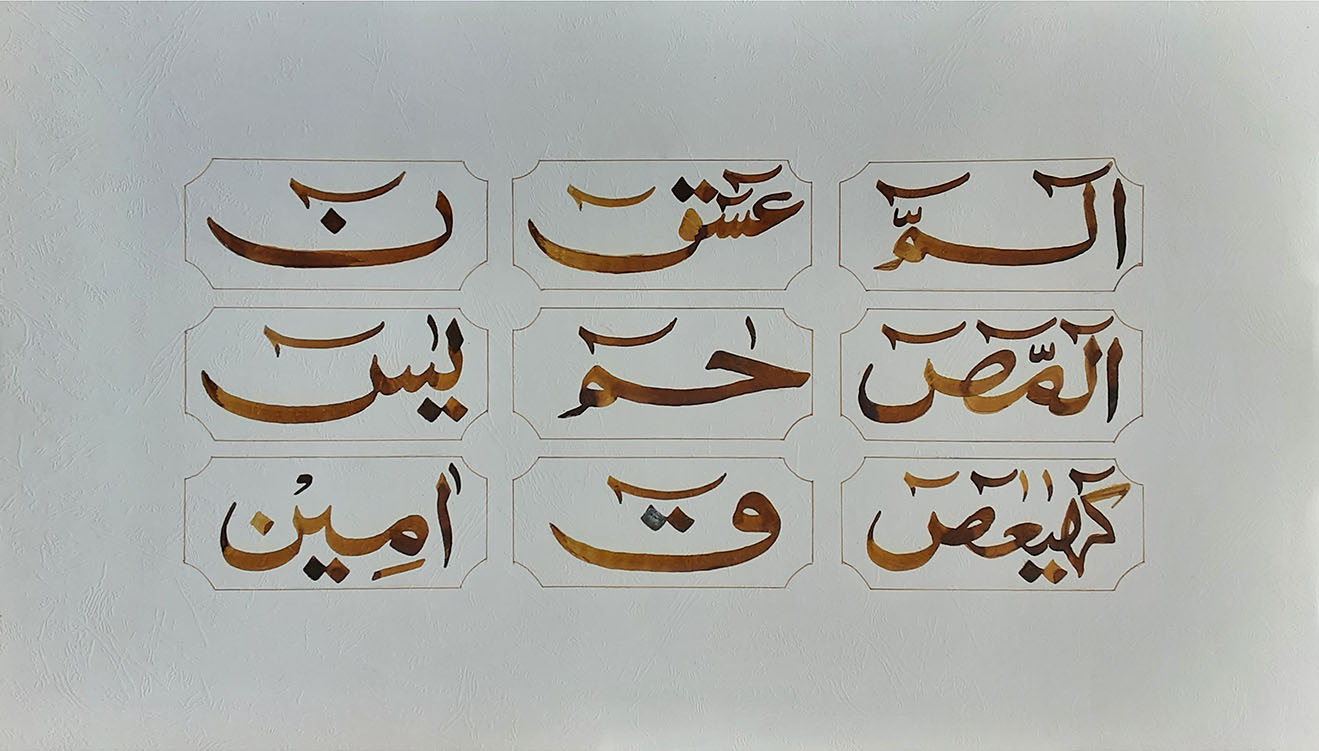 الٓمّٓ عٓسٓقٓ نٓ
الٓمّٓصٓ حٰمٓ يٰسٓ
كٓهٰيٰعٓصٓ قٓ اٰمِيْن